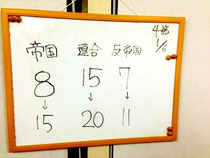 帝国 連合 反帝国
8 15 7
↓ ↓ ↓
15 20 11